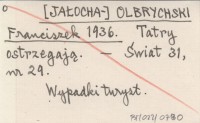 [JAŁOCHA-] OLBRYCHSKI
Franciszek 1936. Tatry
ostrzegają. — Świat 31,
nr 29.
Wypadki turyst.